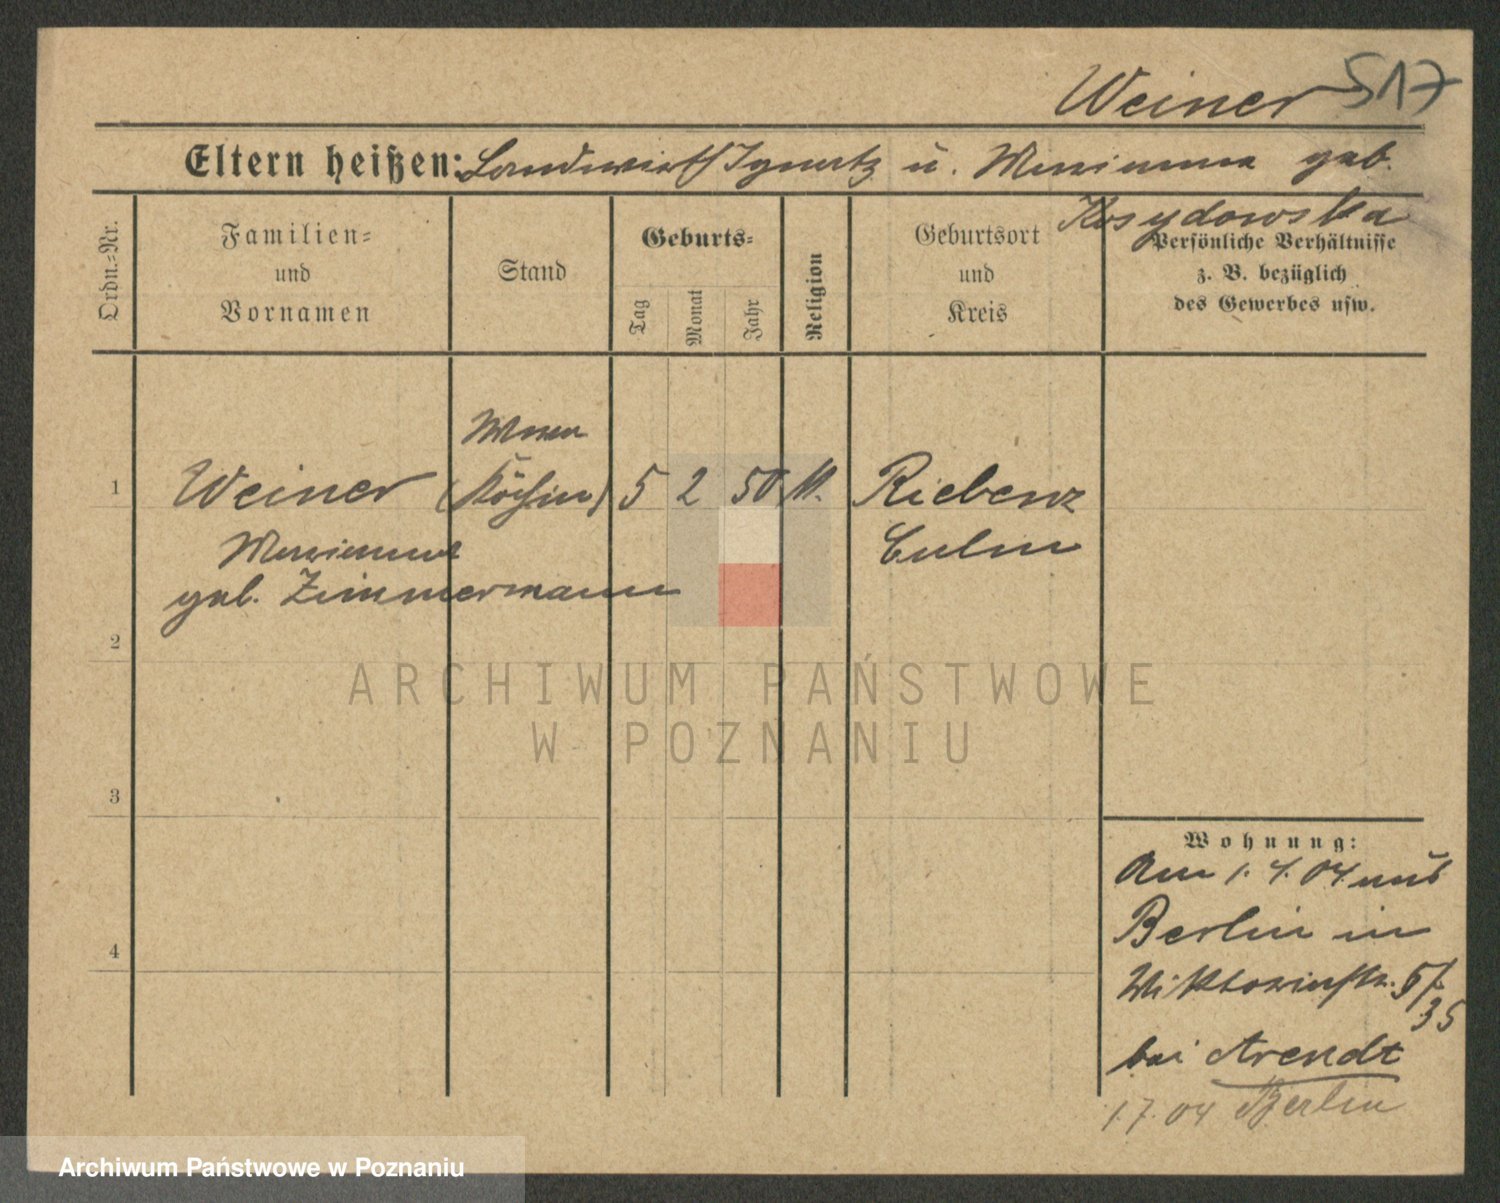 Weiner 517
Eltern heißen: Landwirth Ignatz u. Marianna geb.
Kosydowska
Ordn.-Nr.
Familien-
und
Vornamen
Stand
Geburts-
Tag
Monat
Jahr
Religion
Geburtsort
und
Kreis
Persönliche Verhältnisse
z. B. bezüglich
des Gewerbes usw.
1
Weiner
(Köchin) 5 2 50 k. Riebenz
Marianna
Culm
geb. Zimmermann
2
3
4
Wohnung:
Am 1.4.04 aus
Berlin in
Wiktoriastr. 57
35
bei Arendt
1.7.04 Berlin
ARCHIWUM PAŃSTWOWE
W POZNANIU
Archiwum Państwowe w Poznaniu